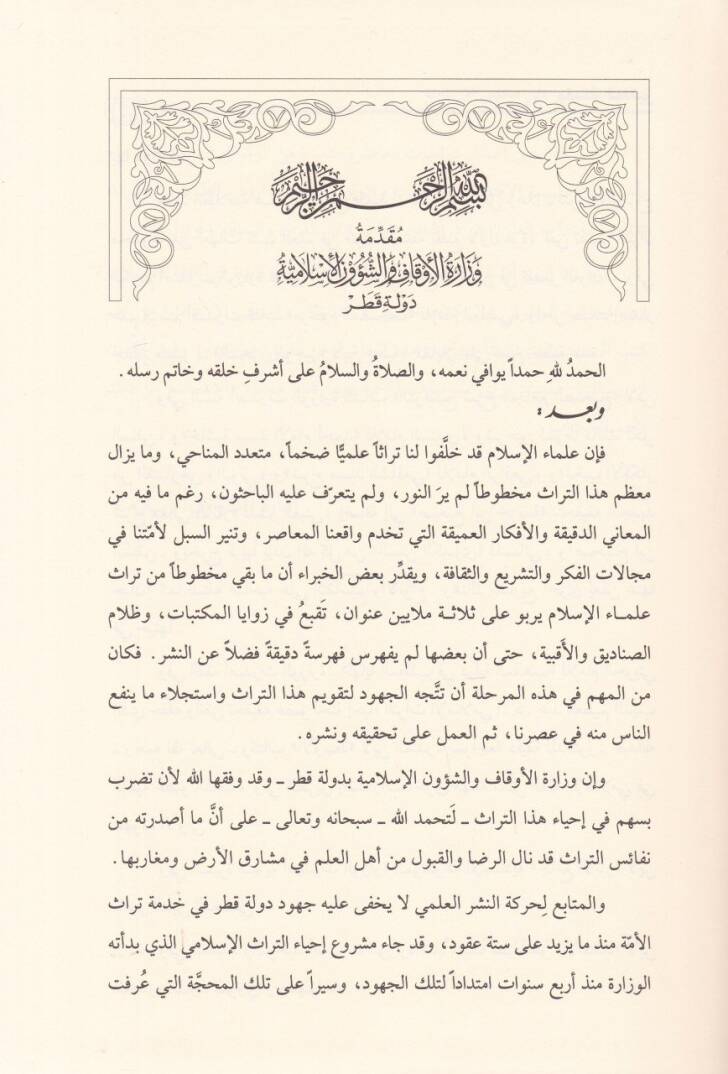 بسم الله الرحمن الرحيم
مُقَدِّمَةُ
وَزَارَةُ الأَوْقَافِ وَالشُّؤُوْنِ الإِسْلَامِيَّةِ
دَوْلَةِ قَطَر
الحمدُ للهِ حمداً يوافي نعمه، والصلاةُ والسلامُ على أشرفِ خلقه وخاتم رسله.
وبعد:
فإن علماء الإسلام قد خلَّفوا لنا تراثاً علميًّا ضخماً، متعدد المناحي، وما يزال
معظم هذا التراث مخطوطاً لم يرَ النور، ولم يتعرّف عليه الباحثون، رغم ما فيه من
المعاني الدقيقة والأفكار العميقة التي تخدم واقعنا المعاصر، وتنير السبل لأمّتنا في
مجالات الفكر والتشريع والثقافة، ويقدِّر بعض الخبراء أن ما بقي مخطوطاً من تراث
علمـاء الإسلام يربو على ثلاثـة ملايين عنوان، تَقبعُ في زوايا المكتبات، وظلام
الصناديق والأَقبية، حتى أن بعضها لم يفهرس فهرسةً دقيقةً فضلاً عن النشر. فكان
من المهم في هذه المرحلة أن تتَّجه الجهود لتقويم هذا التراث واستجلاء ما ينفع
الناس منه في عصرنا، ثم العمل على تحقيقه ونشره.
وإن وزارة الأوقاف والشؤون الإسلامية بدولة قطر ـ وقد وفقها الله لأن تضرب
بسهم في إحياء هذا التراث ـ لَتحمد الله ـ سبحانه وتعالى ـ على أنَّ ما أصدرته من
نفائس التراث قد نال الرضا والقبول من أهل العلم في مشارق الأرض ومغاربها.
والمتابع لِحركة النشر العلمي لا يخفى عليه جهود دولة قطر في خدمة تراث
الأمّة منذ ما يزيد على ستة عقود، وقد جاء مشروع إحياء التراث الإسلامي الذي بدأته
الوزارة منذ أربع سنوات امتداداً لتلك الجهود، وسيراً على تلك المحجَّة التي عُرفت